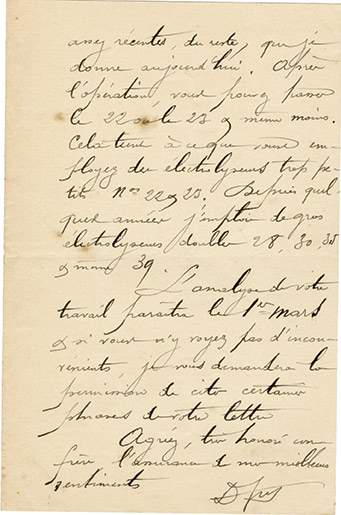 assez récentes, du reste, que je
donne aujourd'hui. Après
l'opération, vous pouvez passer
le 22 ou le 23 & même moins.
Cela tient à ce que vous em-
ployez des électrolyseurs trop pe-
tits Nos 22 & 23. Depuis quel-
ques années j'emploie de gros
électrolyseurs doubles 28, 30, 35
& même 39.
L'analyse de votre
travail paraîtra le 1er mars
& si vous n'y voyez pas d'incon-
vénients, je vous demanderai la
permission de citer certaines
phrases de votre lettre
Agréez, très honoré con-
frère l'assurance de mes meilleurs
sentiments